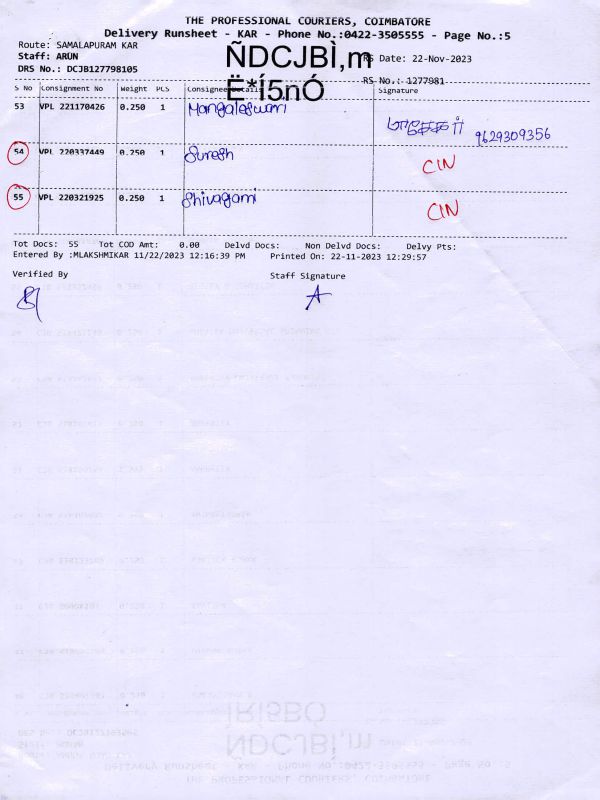 THE PROFESSIONAL COURIERS, COIMBATORE
Delivery Runsheet - KAR - Phone No.:0422-3505555 - Page No.:5
Route: SAMALAPURAM KAR
Staff: ARUN
RS Date: 22-Nov-2023
DRS No.: DCJB127798105
RS No.: 1277981
ÑDCJBÌ,m
Ë*Í5nÓ
S No Consignment No Weight PCS Consignee Details Signature
53 VPL 221170426 0.250 1 Mangaleswari
9629309356
54 VPL 220337449 0.250 1 Suresh CIN
55 VPL 220321925 0.250 1 Shivagami CIN
Tot Docs: 55 Tot COD Amt: 0.00 Delvd Docs: Non Delvd Docs: Delvy Pts:
Entered By :MLAKSHMIKAR 11/22/2023 12:16:39 PM Printed On: 22-11-2023 12:29:57
Verified By Staff Signature